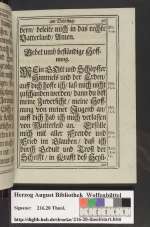 am Sabbtag.
dern/ beleite mich in das rechte
Vatterland/ Amen.
Gebet umb beständige Hoff-
nung.
MEin GOtt und Schöpffer
Himmels und der Erden/
auf dich hoffe ich/ laß mich nicht
zuschanden werden/ dann du bist
meine Zuversicht/ meine Hoff-
nung von meiner Jugend an/
auf dich hab ich mich verlassen
von Mutterleib an. Erfülle
mich mit aller Freude und
Fried im Glauben/ daß ich
durch Gedult und Trost der
Schrifft/ in Krafft des Heili-
Herzog August Bibliothek Wolfenbüttel
Signatur: 216.20 Theol.
http://diglib.hab.de/drucke/216-20-theol/start.htm